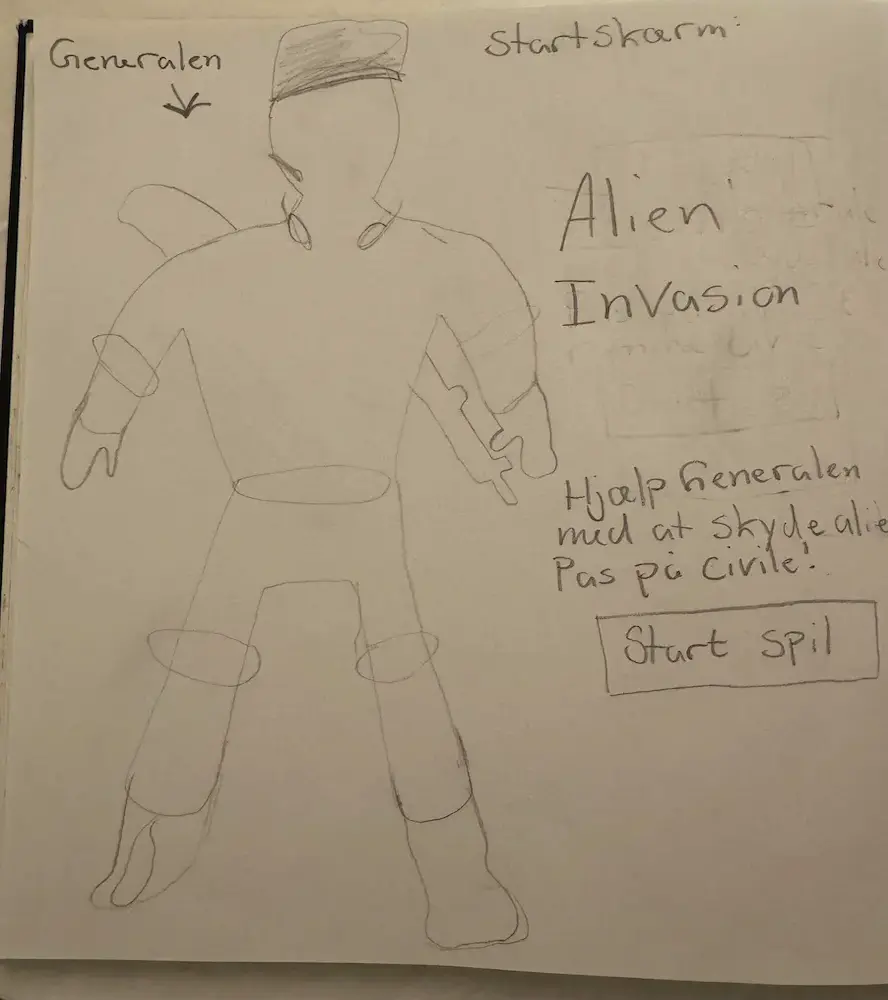 Generalen
Startskærm:
Alien
Invasion
Hjælp Generalen
med at skyde alie
Pas på civile!
Start spil